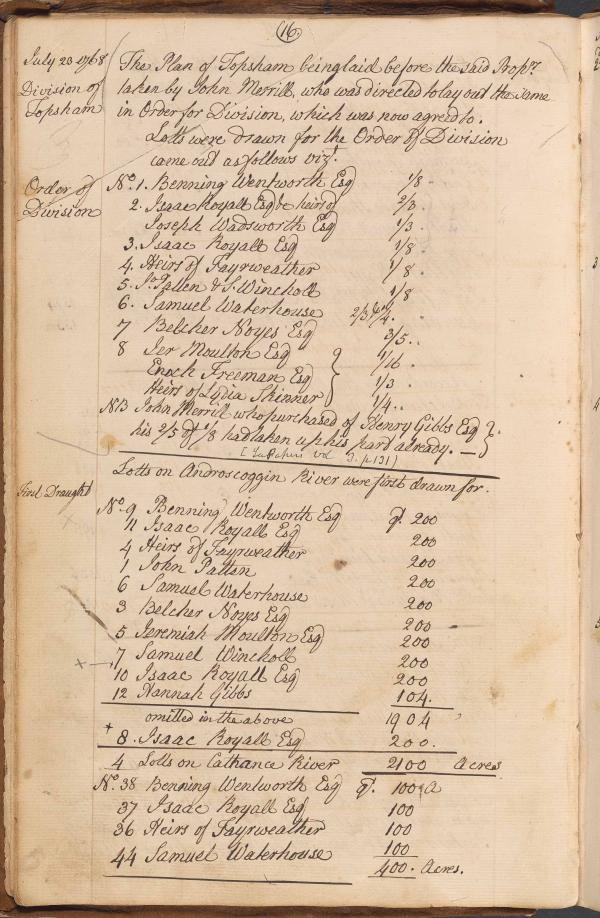 (16)
July 20 1768 The Plan of Topsham being laid before the said Propr.
taken by John Merrill, who was directed to lay out the same
Division of
Topsham in Order for Division, which was now agreed to.
Lotts were drawn for the Order of Division
came out as follows vizt.
Order of
Division
No. 1. Benning Wentworth Esq 1/8
2. Isaac Royall Esq & heirs of 2/3
Joseph Wadsworth Esq 1/3
3. Isaac Royall Esq 1/8
4. Heirs of Fayrweather 1/8
5. Jo. Patten & S. Wincholl 1/8
6. Samuel Waterhouse 2/3 of 1/4
7 Belcher Noyes Esq 3/5
8 Jer Moulton Esq 1/16
Enoch Freeman Esq 1/3
Heirs of Lydia Skinner 1/4
NB John Merrill who purchased of Henry Gibbs Esq
his 2/5 of 1/8 had taken up his part already.
vol 3. p 131)
Lotts on Androscoggin River were first drawn for.
First Draught
No. 9 Benning Wentworth Esq q. 200
11 Isaac Royall Esq 200
4 Heirs of Fayrweather 200
1 John Patten 200
6 Samuel Waterhouse 200
3 Belcher Noyes Esq 200
5 Jeremiah Moulton Esq 200
x 7 Samuel Wincholl 200
10 Isaac Royall Esq 200
12 Hannah Gibbs 104.
omitted in the above 1904
+ 8. Isaac Royall Esq 200.
4 Lotts on Cathance River 2100 Acres
No. 38 Benning Wentworth Esq q. 100 A
37 Isaac Royall Esq 100
36 Heirs of Fayrweather 100
44 Samuel Waterhouse 100
400. Acres.